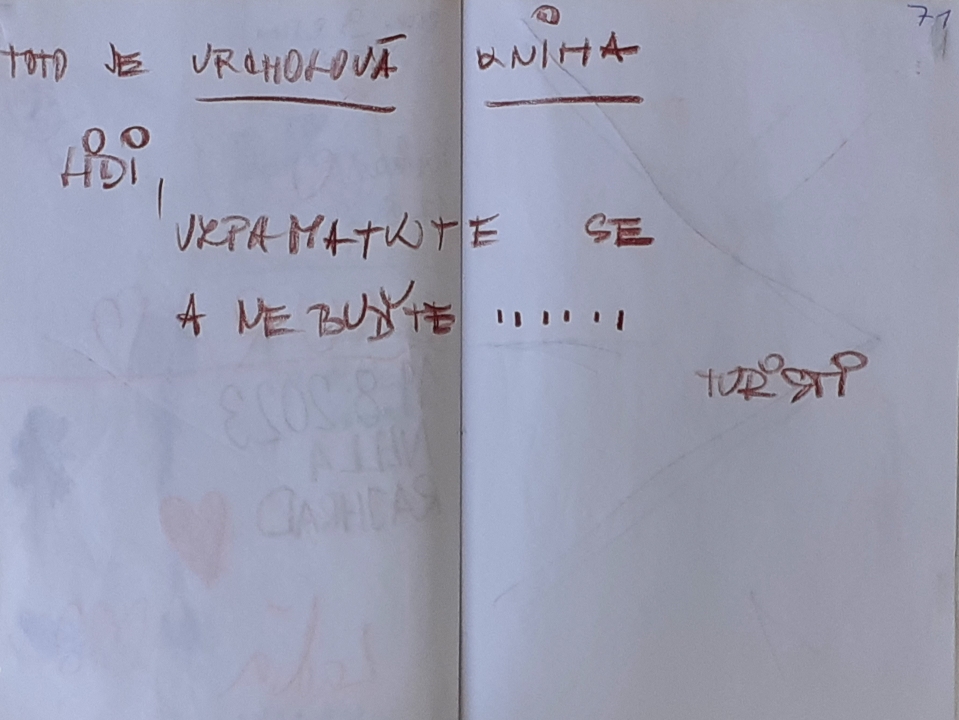 71
TOTO JE VRCHOLOVÁ KNIHA
LIDI,
VZPAMATUJTE SE
A NEBUĎTE ......
TURISTI